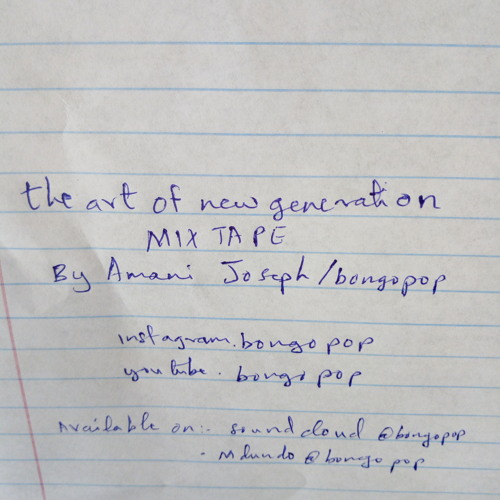 the art of new generation
MIX TAPE
By Amani Joseph/bongopop
instagram.bongo pop
youtube. bongo pop
Available on:- soundcloud @bongopop
- Mdundo @bongo pop